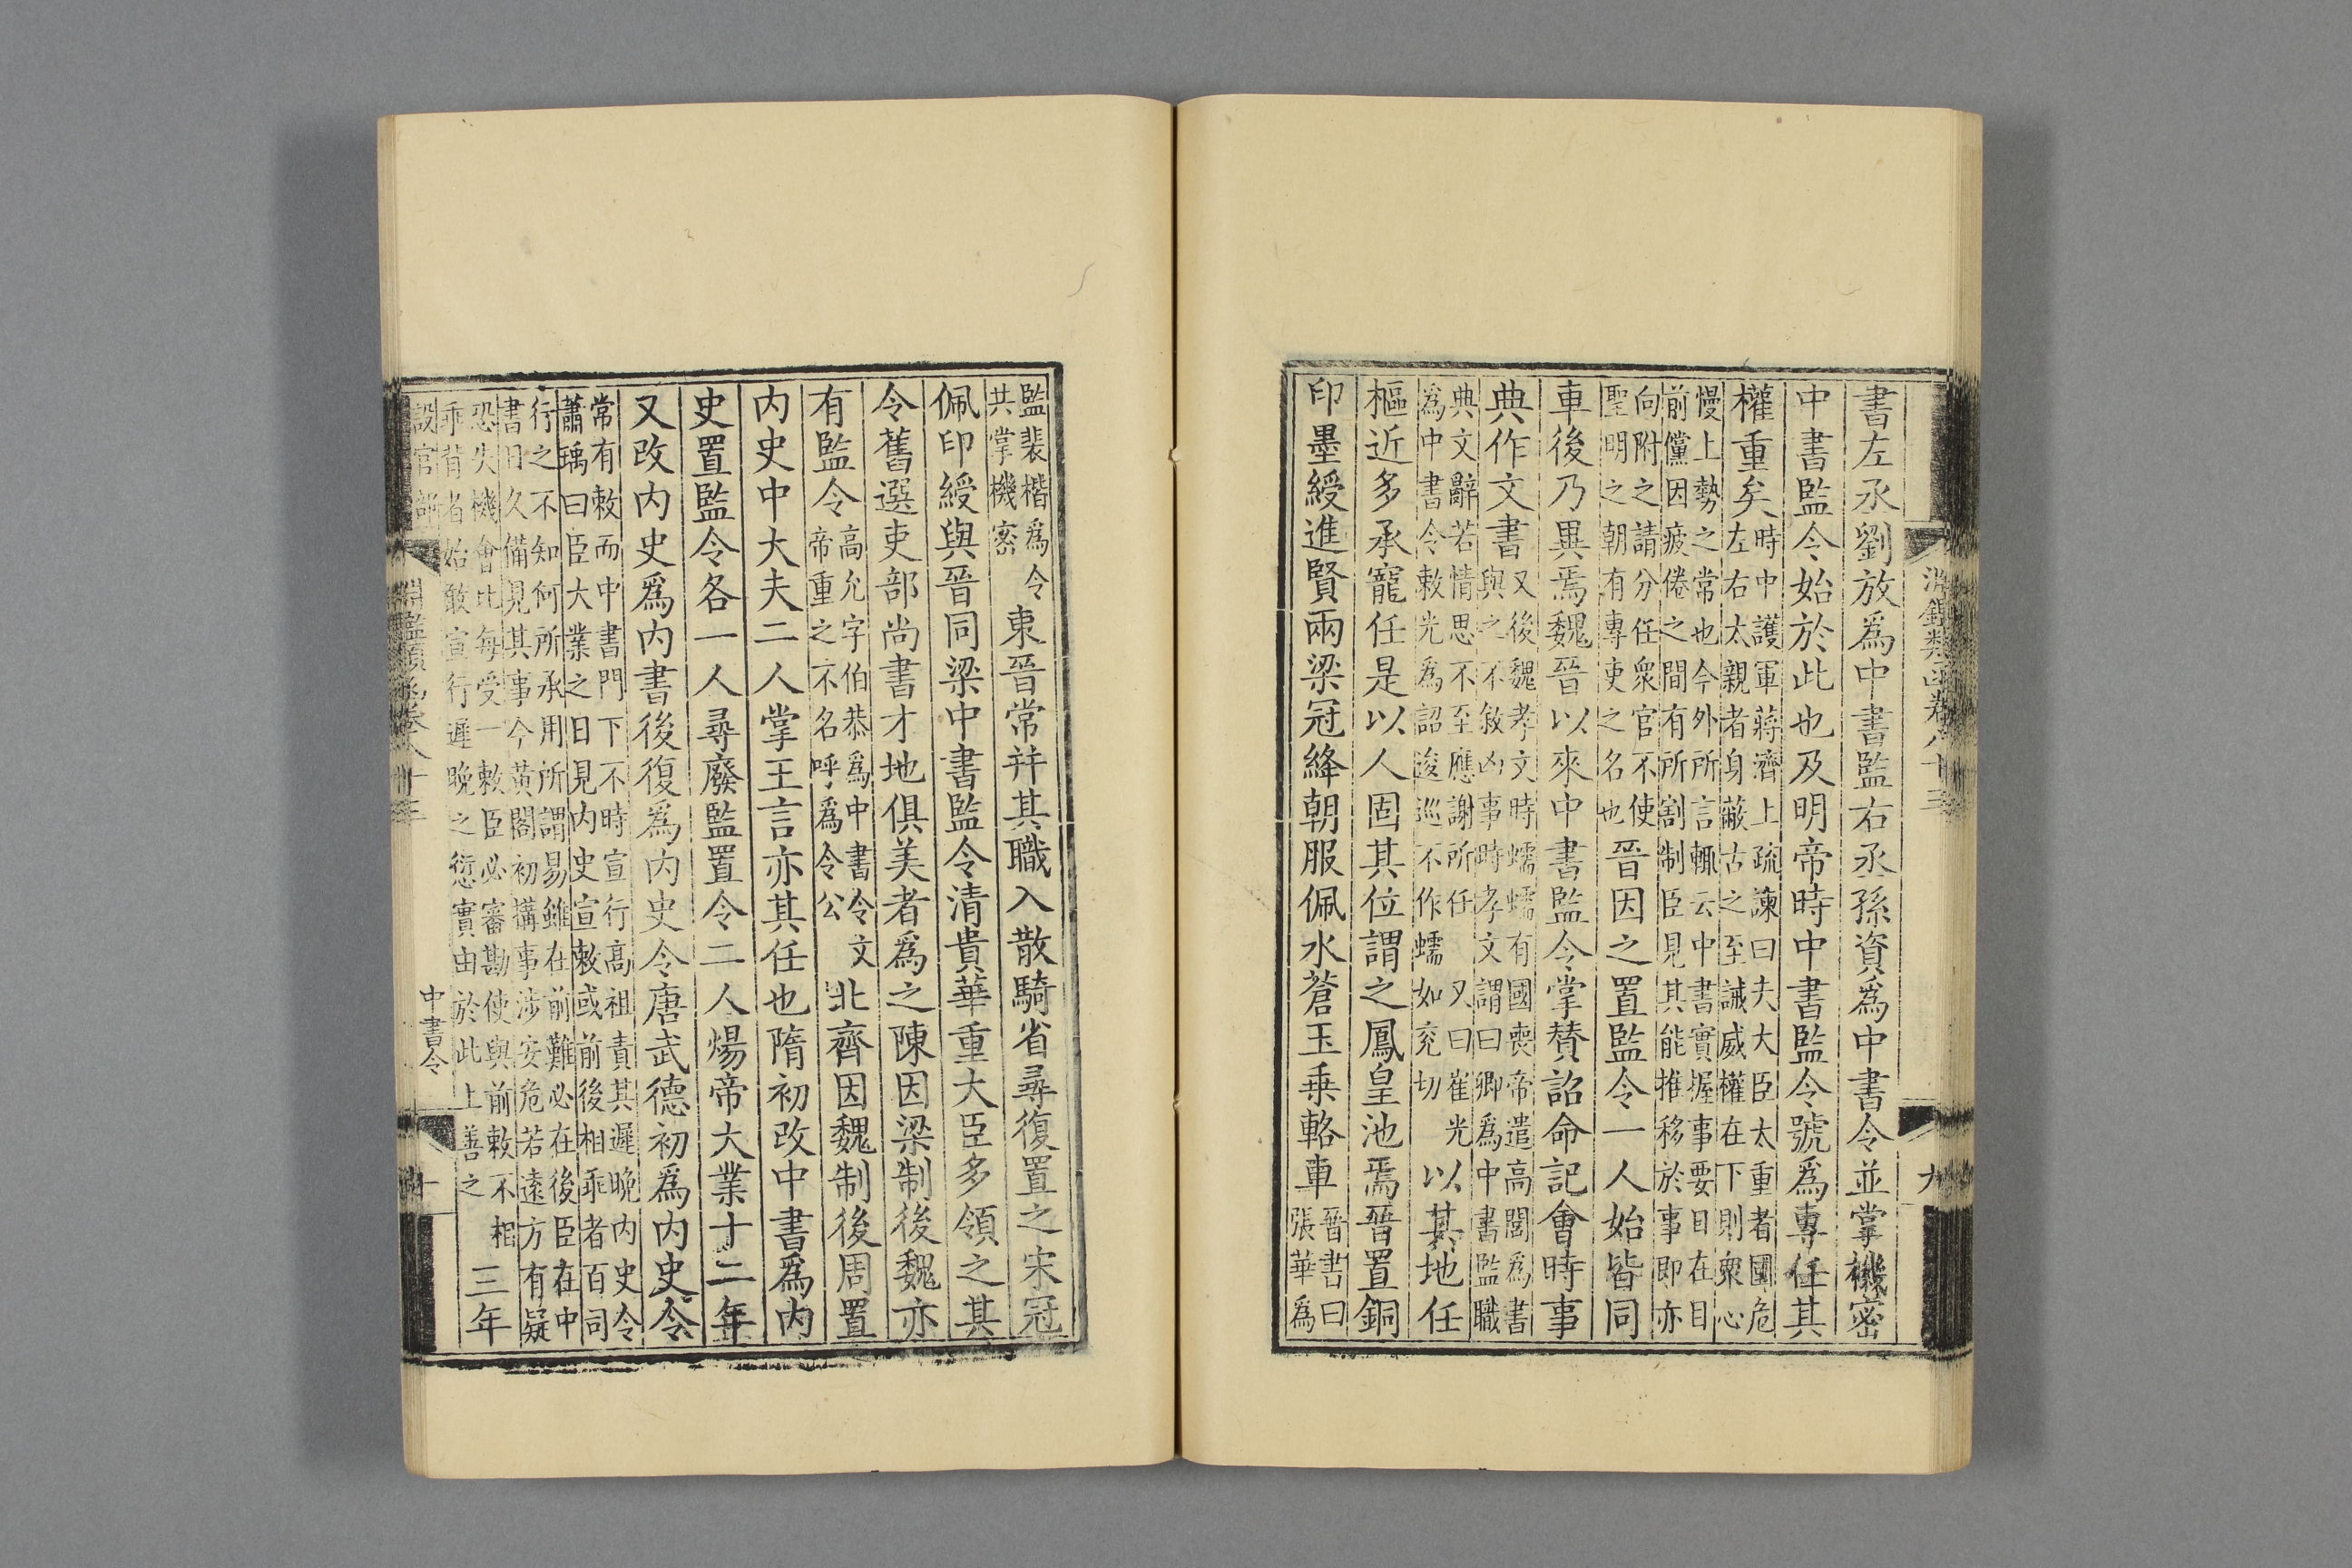 淵鑑類函卷八十三
九
書左丞劉放爲中書監右丞孫資爲中書令並掌機密
中書監令始於此也及明帝時中書監令號爲專任其
權重矣時中護軍蔣濟上疏諫曰夫大臣太重者國危
左右太親者身蔽古之至誡威權在下則衆心
慢上勢之常也今外所言輙云中書實握事要目在目
前儻因疲倦之間有所割制臣見其能推移於事即亦
向附之請分任衆官不使
聖明之朝有專吏之名也晉因之置監令一人始皆同
車後乃異焉魏晉以來中書監令掌贊詔命記會時事
典作文書又後魏孝文時蠕蠕有國喪帝遣高閭爲書
與之不敘凶事時孝文謂曰卿爲中書監職
典文辭若情思不至應謝所任又曰崔光
爲中書令敕光爲詔逡巡不作蠕如兖切以其地任
樞近多承寵任是以人固其位謂之鳳皇池焉晉置銅
印墨綬進賢兩梁冠絳朝服佩水蒼玉乗軺車晉書曰
張華爲
監裴楷爲令
共掌機密東晉常并其職入散騎省尋復置之宋冠
佩印綬與晉同梁中書監令清貴華重大臣多領之其
令舊選吏部尚書才地俱美者爲之陳因梁制後魏亦
有監令高允字伯恭爲中書令文
帝重之不名呼爲令公北齊因魏制後周置
内史中大夫二人掌王言亦其任也隋初改中書爲内
史置監令各一人尋廢監置令二人煬帝大業十二年
又改内史爲内書後復爲内史令唐武德初爲内史令
常有敕而中書門下不時宣行高祖責其遲晚内史令
蕭瑀曰臣大業之日見内史宣敕或前後相乖者百司
行之不知何所承用所謂易雖在前難必在後臣在中
書日久備見其事今黄閣初搆事涉安危若遠方有疑
恐失機會比每受一敕臣必審勘使與前敕不相
乖背者始敢宣行遲晚之愆實由於此上善之三年
設官部
淵鑑類函卷八十三
中書令
十